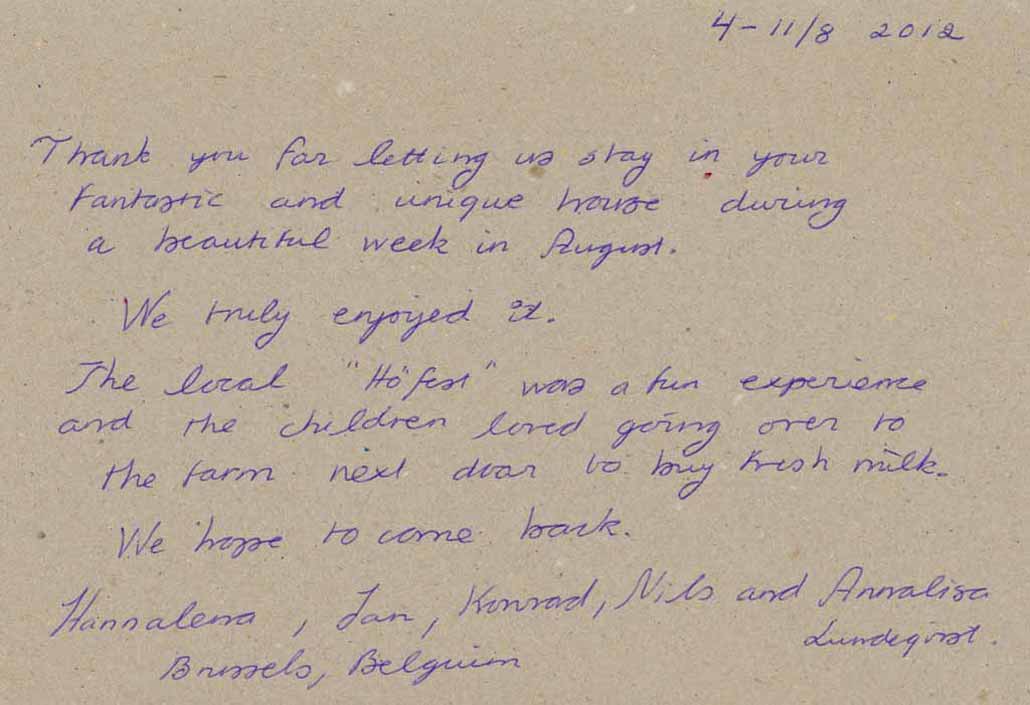 4-11/8 2012
Thank you for letting us stay in your
fantastic and unique house during
a beautiful week in August.
We truly enjoyed it.
The local "Höfest" was a fun experience
and the children loved going over to
the farm next door to buy fresh milk.
We hope to come back.
Hannalena, Jan, Konrad, Nils and Annalisa
Lundeqvist.
Brussels, Belgium